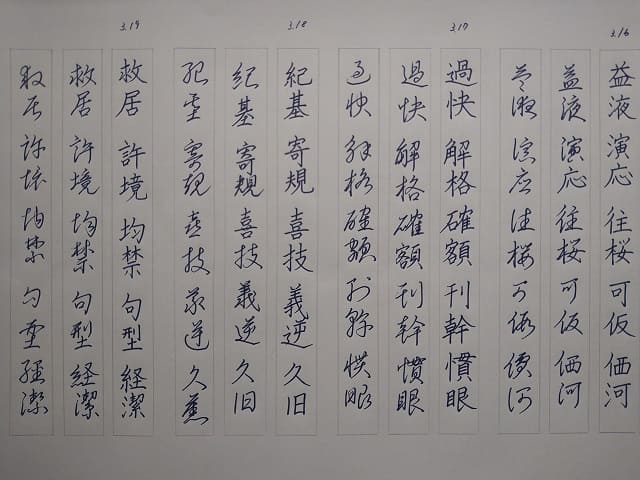 3.16
益液演応往桜可仮価河
益液演応往桜可仮価河
益液演応往桜可仮価河
3.17
過快解格確額刊幹慣眼
過快解格確額刊幹慣眼
過快解格確額刊幹慣眼
3.18
紀基寄規喜技義逆久旧
紀基寄規喜技義逆久旧
紀基寄規喜技義逆久旧
3.19
救居許境均禁句型経潔
救居許境均禁句型経潔
救居許境均禁句型経潔